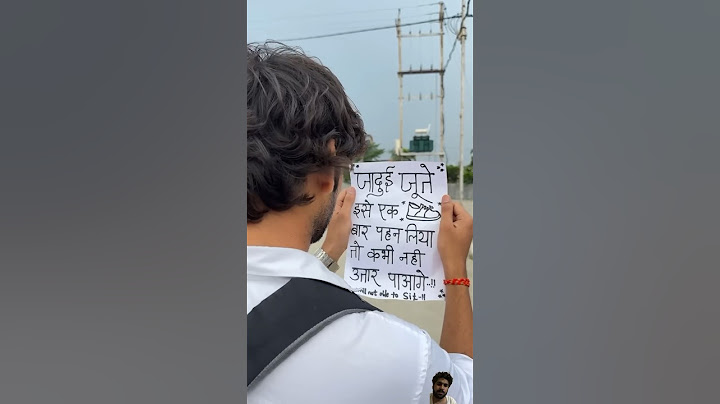 जादुई जूते
इसे एक
बार पहन लिया
तो कभी नही
उतार पाआगे..!!
will not able to Sit..!!